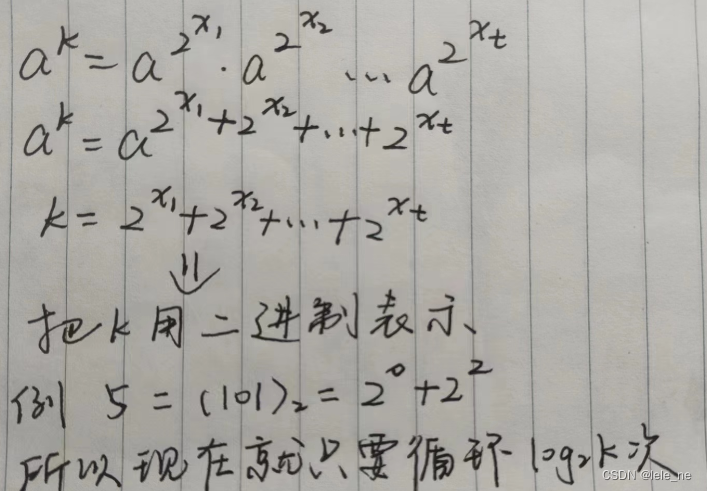 a^k = a^{2^{x_1}} · a^{2^{x_2}} ... a^{2^{x_t}}
a^k = a^{2^{x_1} + 2^{x_2} + ... + 2^{x_t}}
k = 2^{x_1} + 2^{x_2} + ... + 2^{x_t}
⇓
把k用二进制表示、
例 5 = (101)₂ = 2^0 + 2^2
所以现在就只要循环 log₂k次
CSDN @lele_ne